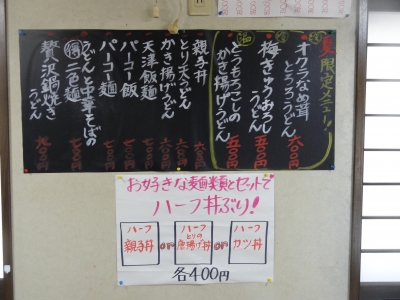 夏限定メニュー!
オクラなめ茸とろろうどん 六〇〇
梅きゅうおろしうどん 五〇〇
温
とうもろこしのかき揚げうどん 五〇〇
親子丼 六〇〇
とり天うどん
かき揚げうどん
天津飯麺
パーコー飯
パーコー麺
うどんと中華そばの
得二色麺
贅沢鍋焼きうどん
お好きな麺類とセットで
ハーフ丼ぶり!
ハーフ親子丼
or
ハーフとりの唐揚げ丼
or
ハーフカツ丼
各400円